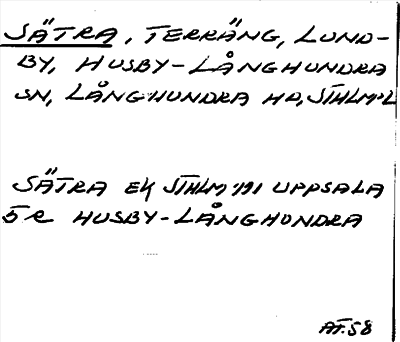 SÄTRA, TERRÄNG, LUND-
BY, HUSBY-LÅNGHUNDRA
SN, LÅNGHUNDRA HD, STHLMSL
SÄTRA EK STHLM 191 UPPSALA
5 R HUSBY-LÅNGHUNDRA
AT.58